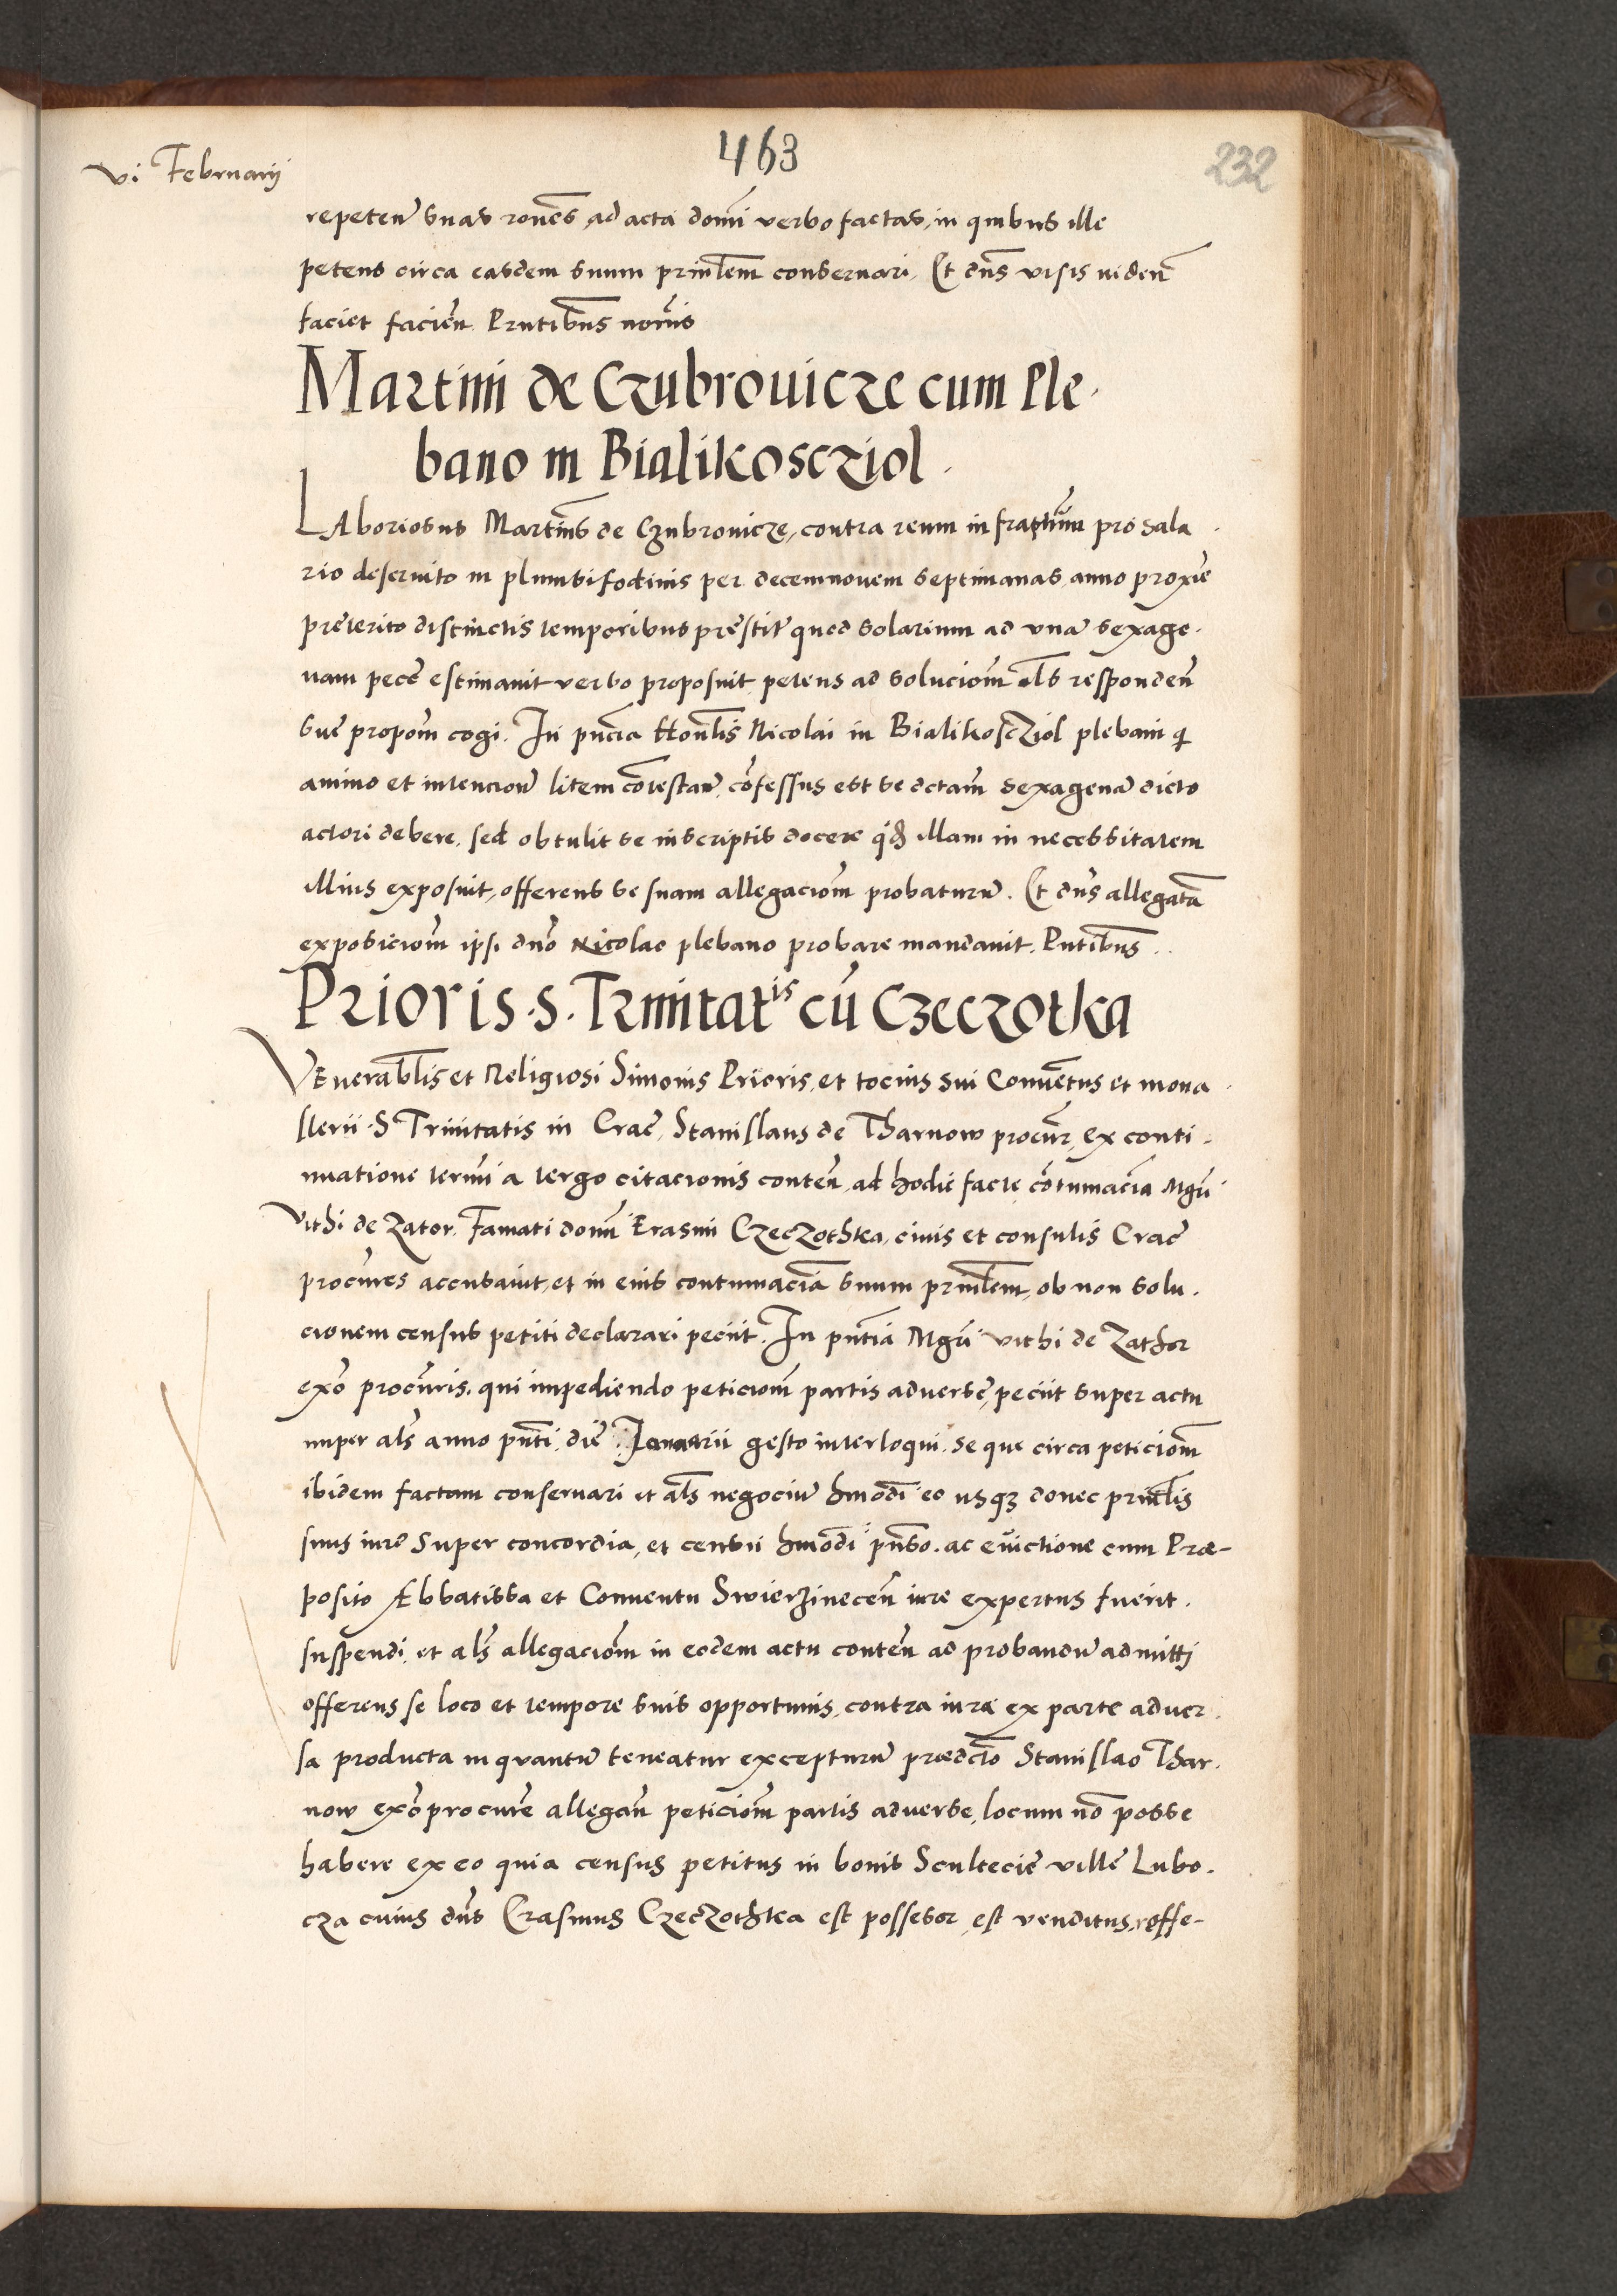 463
232
vi Februarij
repeten suas rones ad acta domi verbo factas, in quibus ille
petens circa easdem suum prinlem conservari. Et dns visis viden
faciet facien. Pntibus notriis
Martini de Czubrovicze cum Ple-
bano in Bialikoscziol.
LAboriosus Martinus de Czubrovicze, contra reum infrascriptum pro sala
rio deservito in plumbifodinis per decemnovem septimanas, anno proxie
preterito distinctis temporibus prestit quod solarium ad una sexage-
nam pecce estimavit verbo proposuit, petens ad solucioem als responden
sue propom cogi. In pncia Honlis Nicolai in Bialikoscziol plebani qi
animo et intencione litem contestan, confessus est se dctam sexagena dicto
actori debere, sed obtulit se in scriptis docere qd illam in necessitatem
illius exposuit, offerens se suam allegaciom probaturu. Et dns allegata
exposiciom ipsi dno Nicolao plebano probare mandavit. Pntibus..
Prioris. S. Trinitatis cu Czeczotka
VEnerablis et Religiosi Simonis Prioris, et tocius sui Conventus et mona
sterii S Trinitatis in Crac, Stanislaus de Tharnow procur, ex conti-
nuatione termi a tergo citacionis conten, ad hodie facte, contumacia Mgri
Vithi de Zator, Famati domi Erasmi Czeczothka, civis et consulis Crac
procures accusavit, et in eius contumacia suum prinlem, ob non solu-
cionem census petiti declarari peciit. In pntia Mgri Vithi de Zathor
exo procuris, qui impediendo peticiom partis adverse, peciit super actu
nuper als anno pnti, die Januarii gesto interloqui, se que circa peticiom
ibidem factam conservari et als negociu hmodi eo usq3 donec prinlis
suus iure super concordia, et censu hmodi pnso. ac evictione cum Præ-
posito Abbatissa et Conventu Swierzinecen iure expertus fuerit.
suspendi, et als allegaciom in eodem actu conten ad probandu admitti
offerens se loco et tempore suis opportunis, contra iura ex parte adver-
sa producta in quantu teneatur excepturu præedcto Stanislao Thar-
now exo procure allegan peticiom partis adverse, locum no posse
habere ex eo quia census petitus in bonis Scultecie ville Lubo-
cza cuius dns Erasmus Czeczothka est possesor, est venditus, offe-